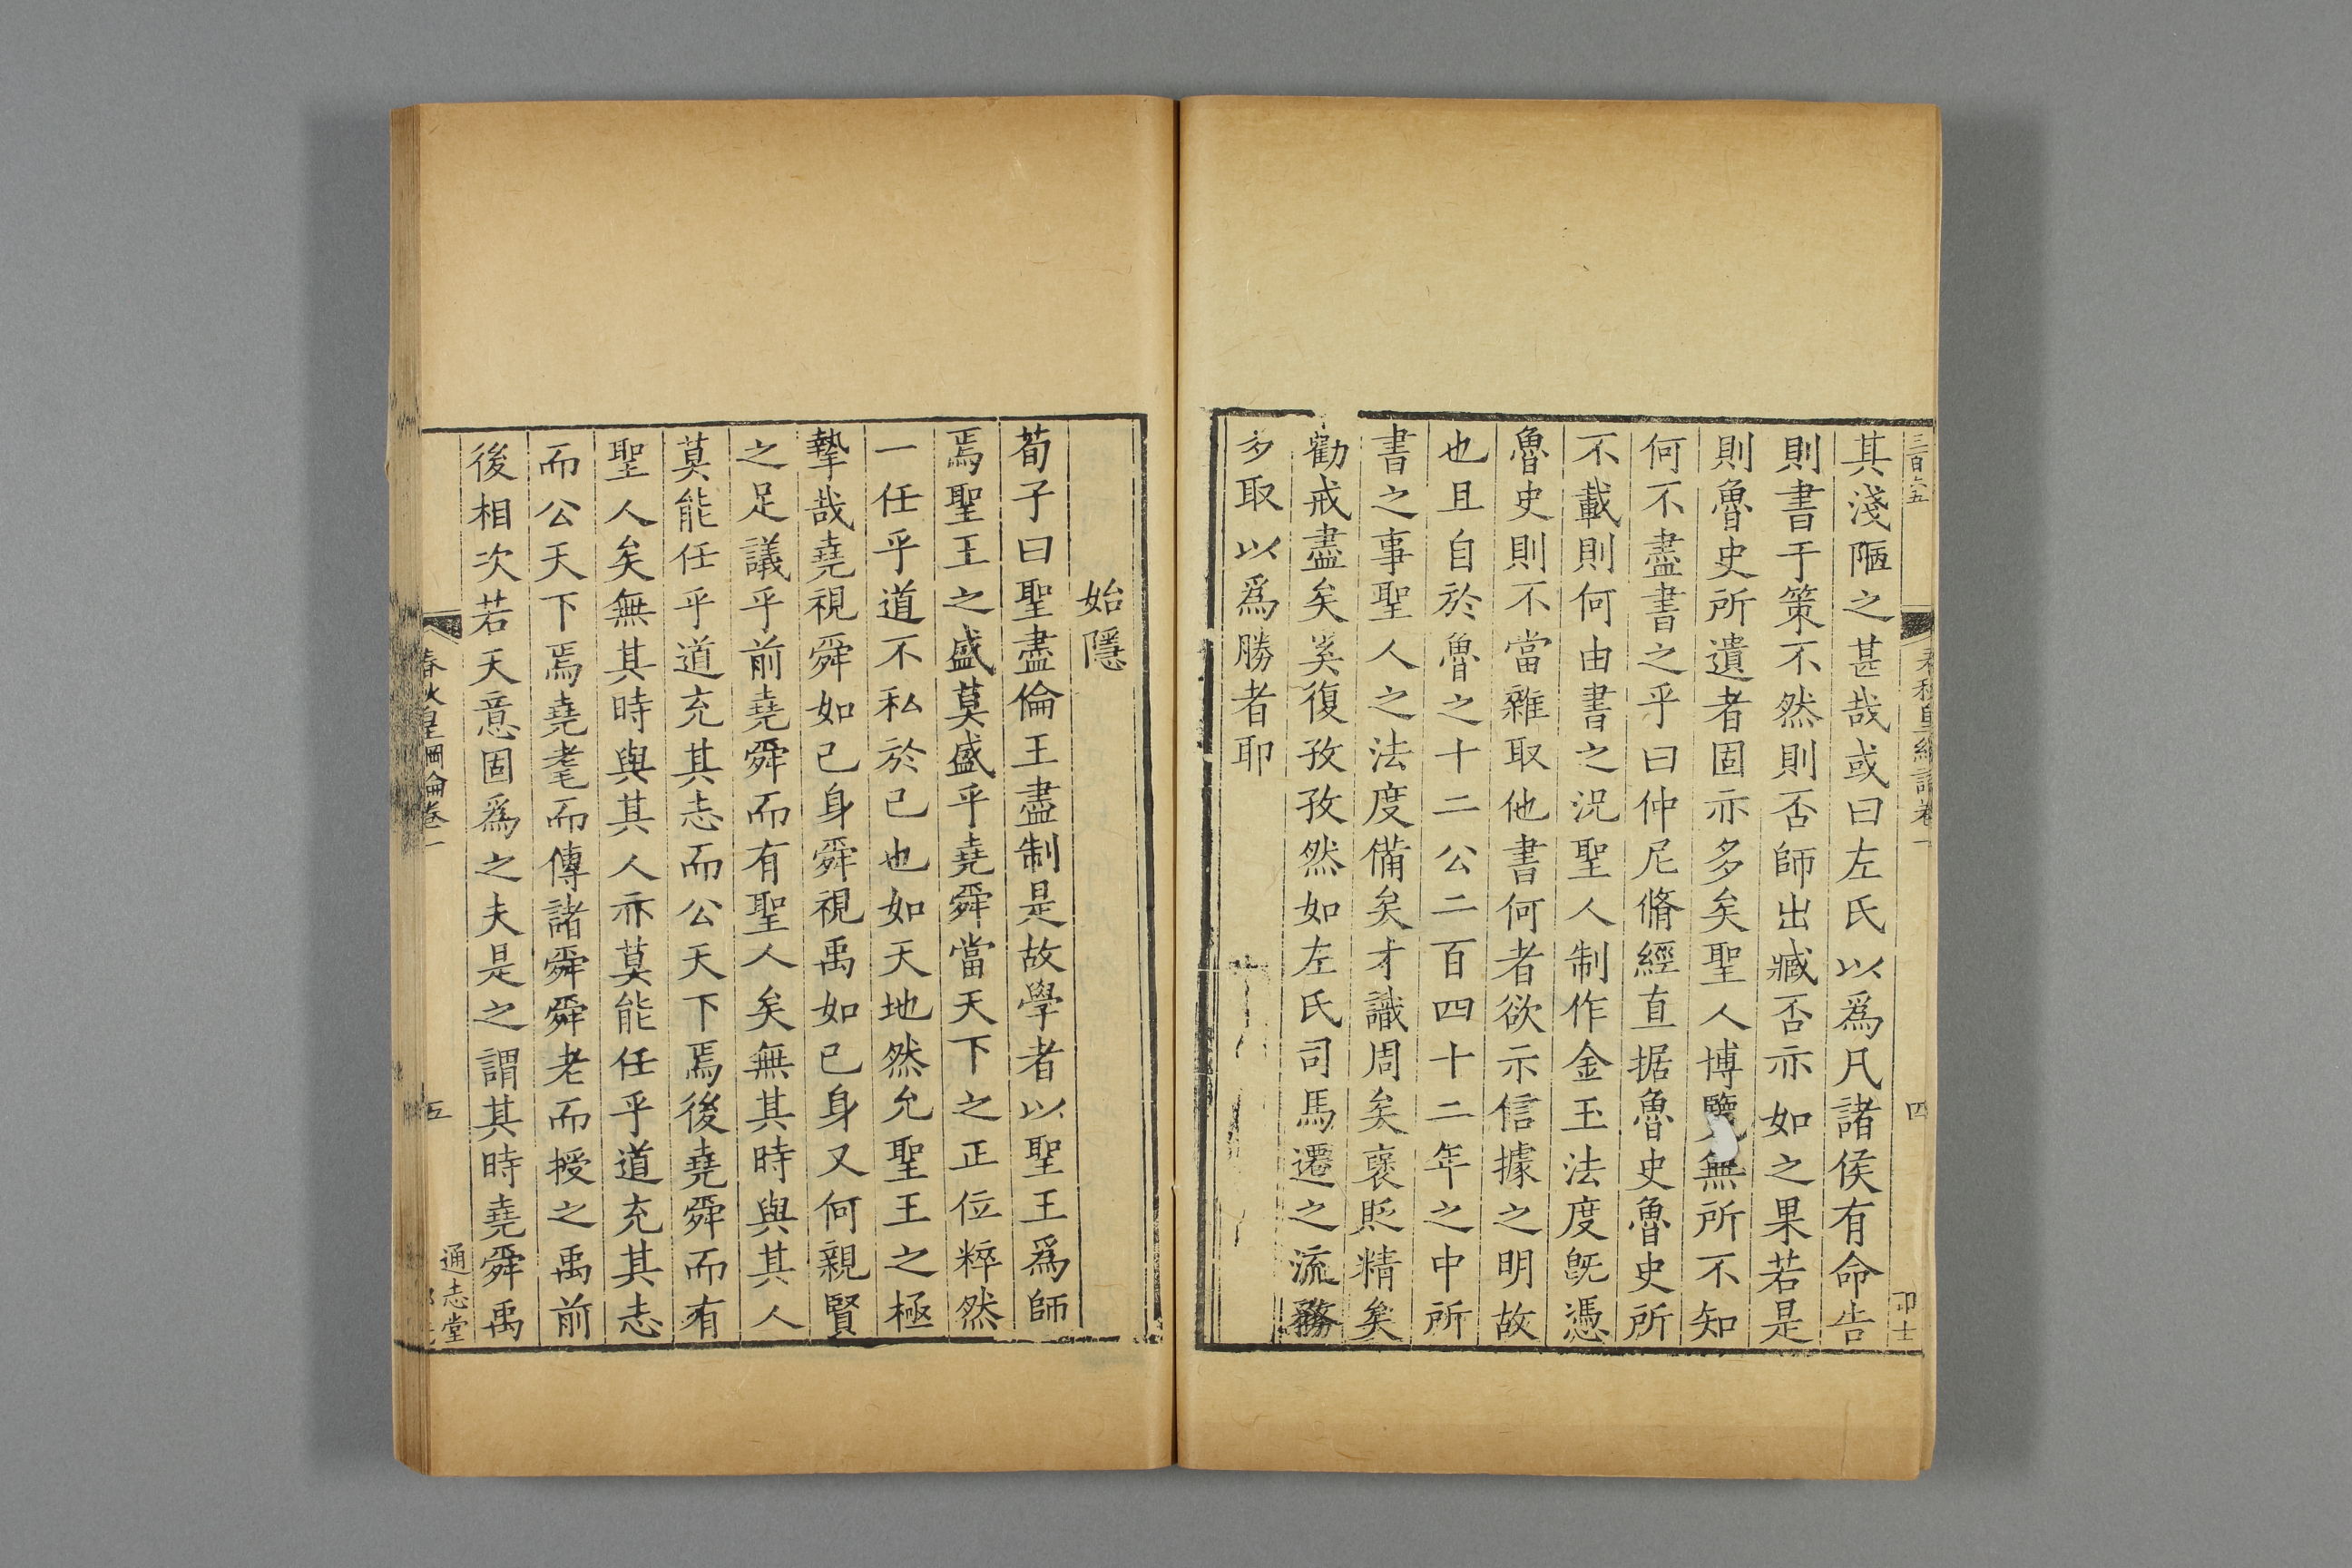 三百六五
四
其淺陋之甚哉或曰左氏以爲凡諸侯有命告
則書于策不然則否師出臧否亦如之果若是
則魯史所遺者固亦多矣聖人博覽無所不知
何不盡書之乎曰仲尼脩經直据魯史魯史所
不載則何由書之況聖人制作金玉法度旣憑
魯史則不當雜取他書何者欲示信據之明故
也且自於魯之十二公二百四十二年之中所
書之事聖人之法度備矣才識周矣褒貶精矣
勸戒盡矣奚復孜孜然如左氏司馬遷之流務
多取以爲勝者耶
始隱
荀子曰聖盡倫王盡制是故學者以聖王爲師
焉聖王之盛莫盛乎堯舜當天下之正位粹然
一任乎道不私於己也如天地然允聖王之極
摯哉堯視舜如己身舜視禹如己身又何親賢
之足議乎前堯舜而有聖人矣無其時與其人
莫能任乎道充其志而公天下焉後堯舜而有
聖人矣無其時與其人亦莫能任乎道充其志
而公天下焉堯耄而傳諸舜舜老而授之禹前
後相次若天意固爲之夫是之謂其時堯舜禹
春秋皇綱論卷一
五
通志堂